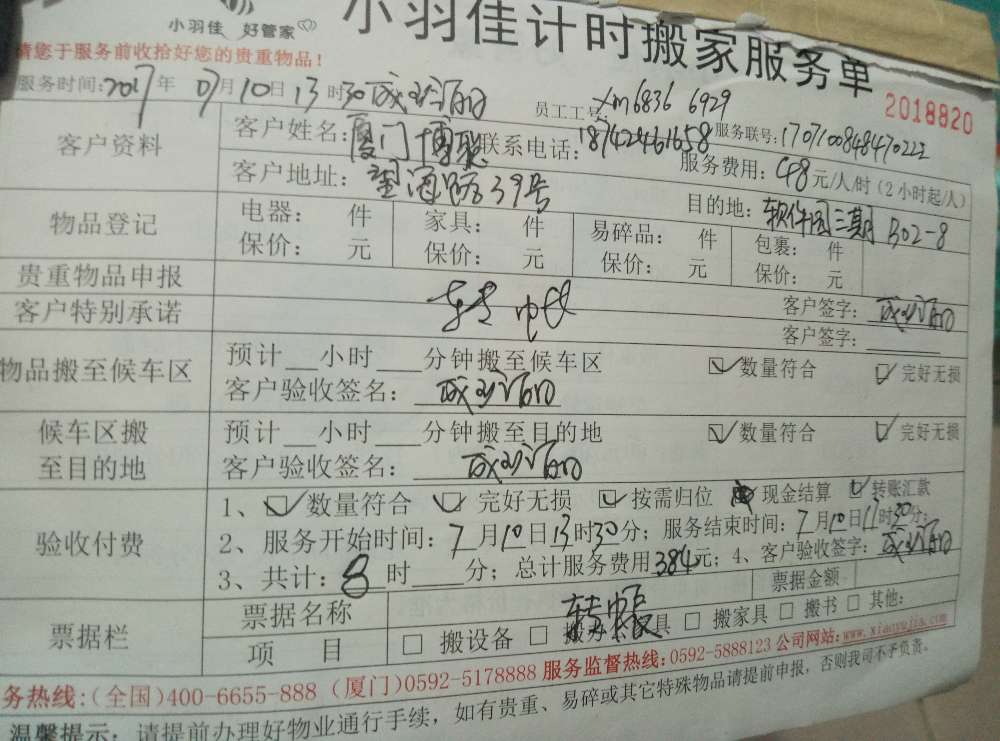 小羽佳 好管家
小羽佳计时搬家服务单
请您于服务前收拾好您的贵重物品！
2018820
服务时间:2017年 07月10日13时30
员工工号: xm6836 6929
客户资料
客户姓名:厦门博聪 联系电话:18742461658 服务联号:1707100848470222
客户地址: 望海路39号 服务费用: 48元/人/时（2小时起/人）
目的地: 软件园三期 B02-8
物品登记
电器: 件 家具: 件 易碎品: 件 包裹: 件
保价: 元 保价: 元 保价: 元 保价: 元
贵重物品申报 客户签字:
客户特别承诺 客户签字:
物品搬至候车区
预计__小时___分钟搬至候车区 ☑数量符合 ☑完好无损
客户验收签名:
候车区搬至目的地
预计__小时___分钟搬至目的地 ☑数量符合 ☑完好无损
客户验收签名:
验收付费
1、☑数量符合 ☑完好无损 ☑按需归位 现金结算 ☑转账汇款
2、服务开始时间: 7月10日13时30分; 服务结束时间: 7月10日17时30分;
3、共计: 8时___分; 总计服务费用384元; 4、客户验收签字:
票据栏
票据名称 票据金额
项 目 □ 搬设备 □ □ 搬家具 □ 搬书 □ 其他:
务热线:(全国)400-6655-888 (厦门)0592-5178888 服务监督热线:0592-5888123 公司网站:www.xiaoyujia.com
温馨提示: 请提前办理好物业通行手续，如有贵重、易碎或其它特殊物品请提前申报，否则我司不予负责。